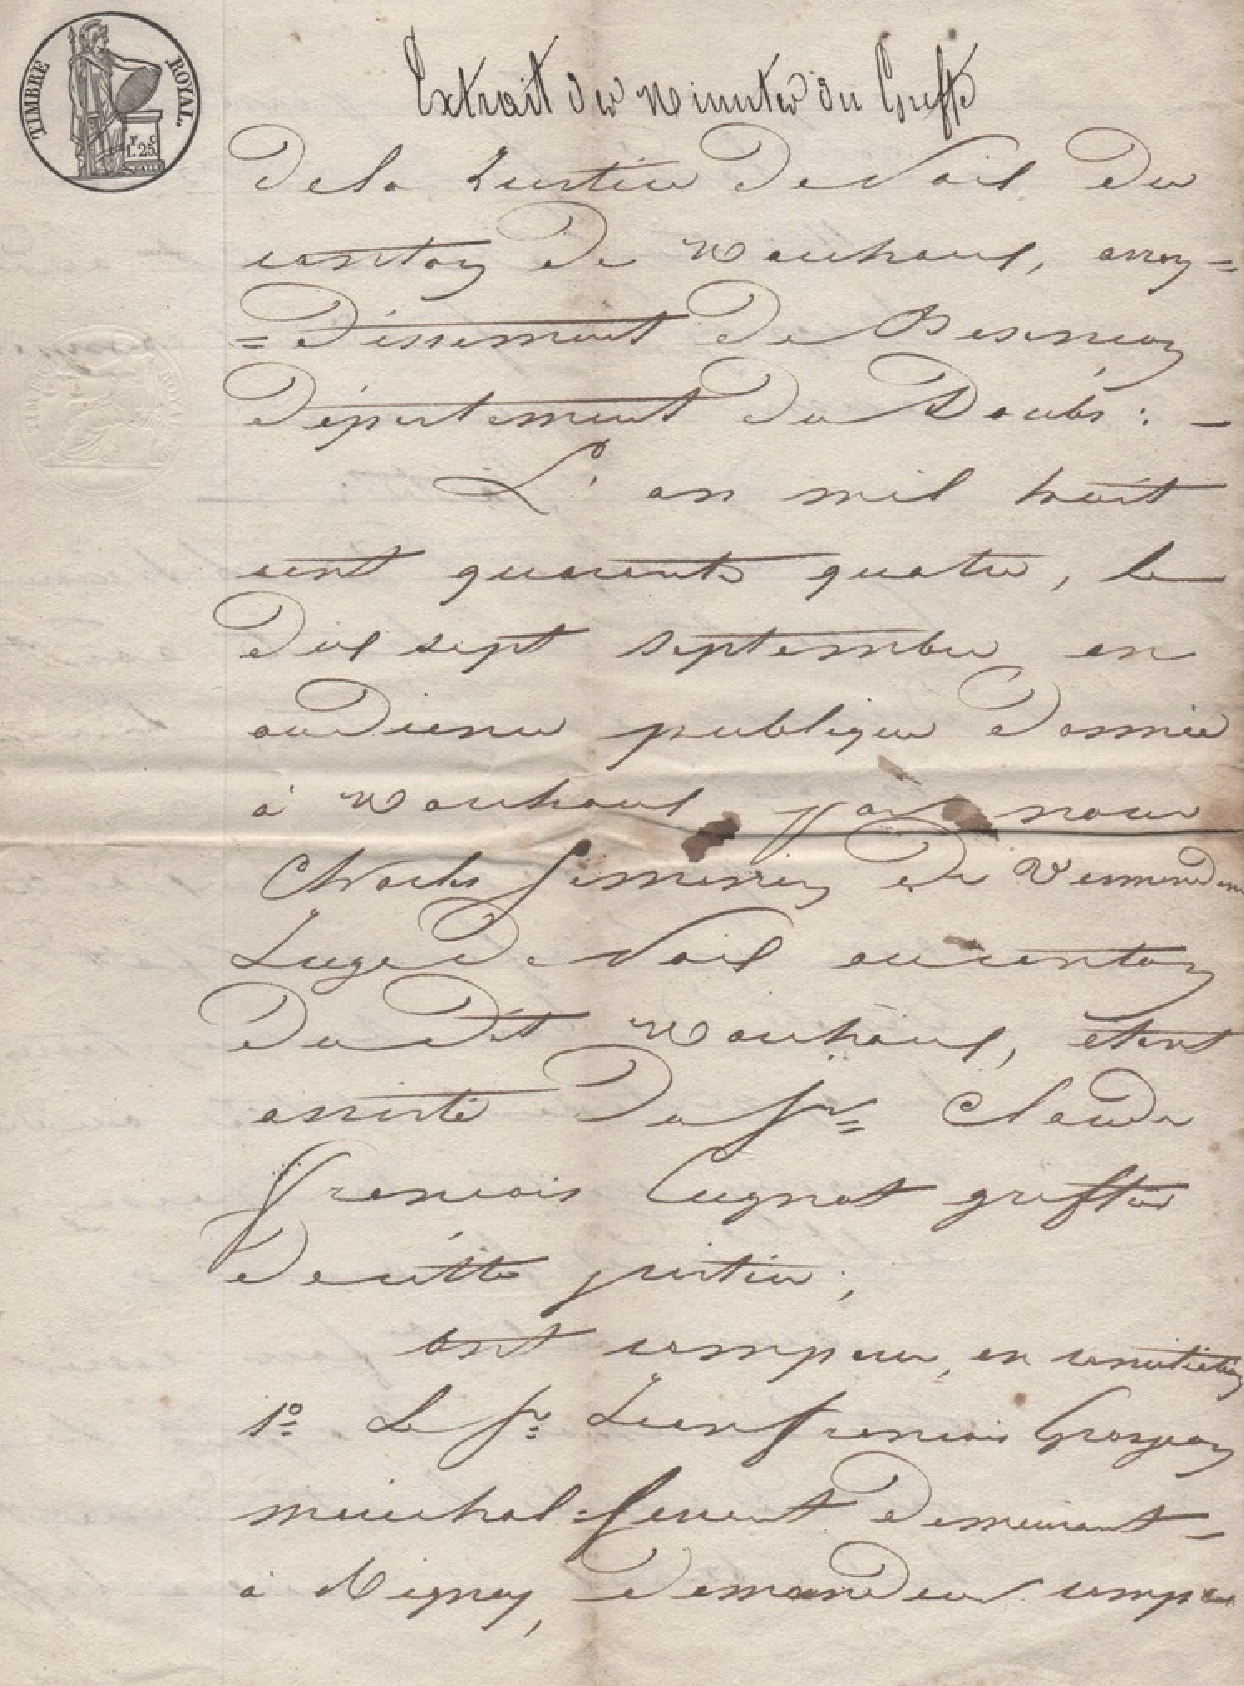 TIMBRE ROYAL.
F. C.
1. 25.
Extrait des minutes du Greffe
de la Justice de Paix du
canton de Rouhaud, arron=
=dissement de Besancon
département du Doubs : -
L'an mil huit
cent quarante quatre, le
dix sept septembre en
audience publique donnée
à par nous
Charles de
Juge de Paix au canton
du dit étant
assisté du Sr Claude
francois Cugnot greffier
de cette justice ;
ont comparu, en conciliation
1º Le Sr Jean francois Grosjean
maréchal=ferrant demeurant -
à demandeur